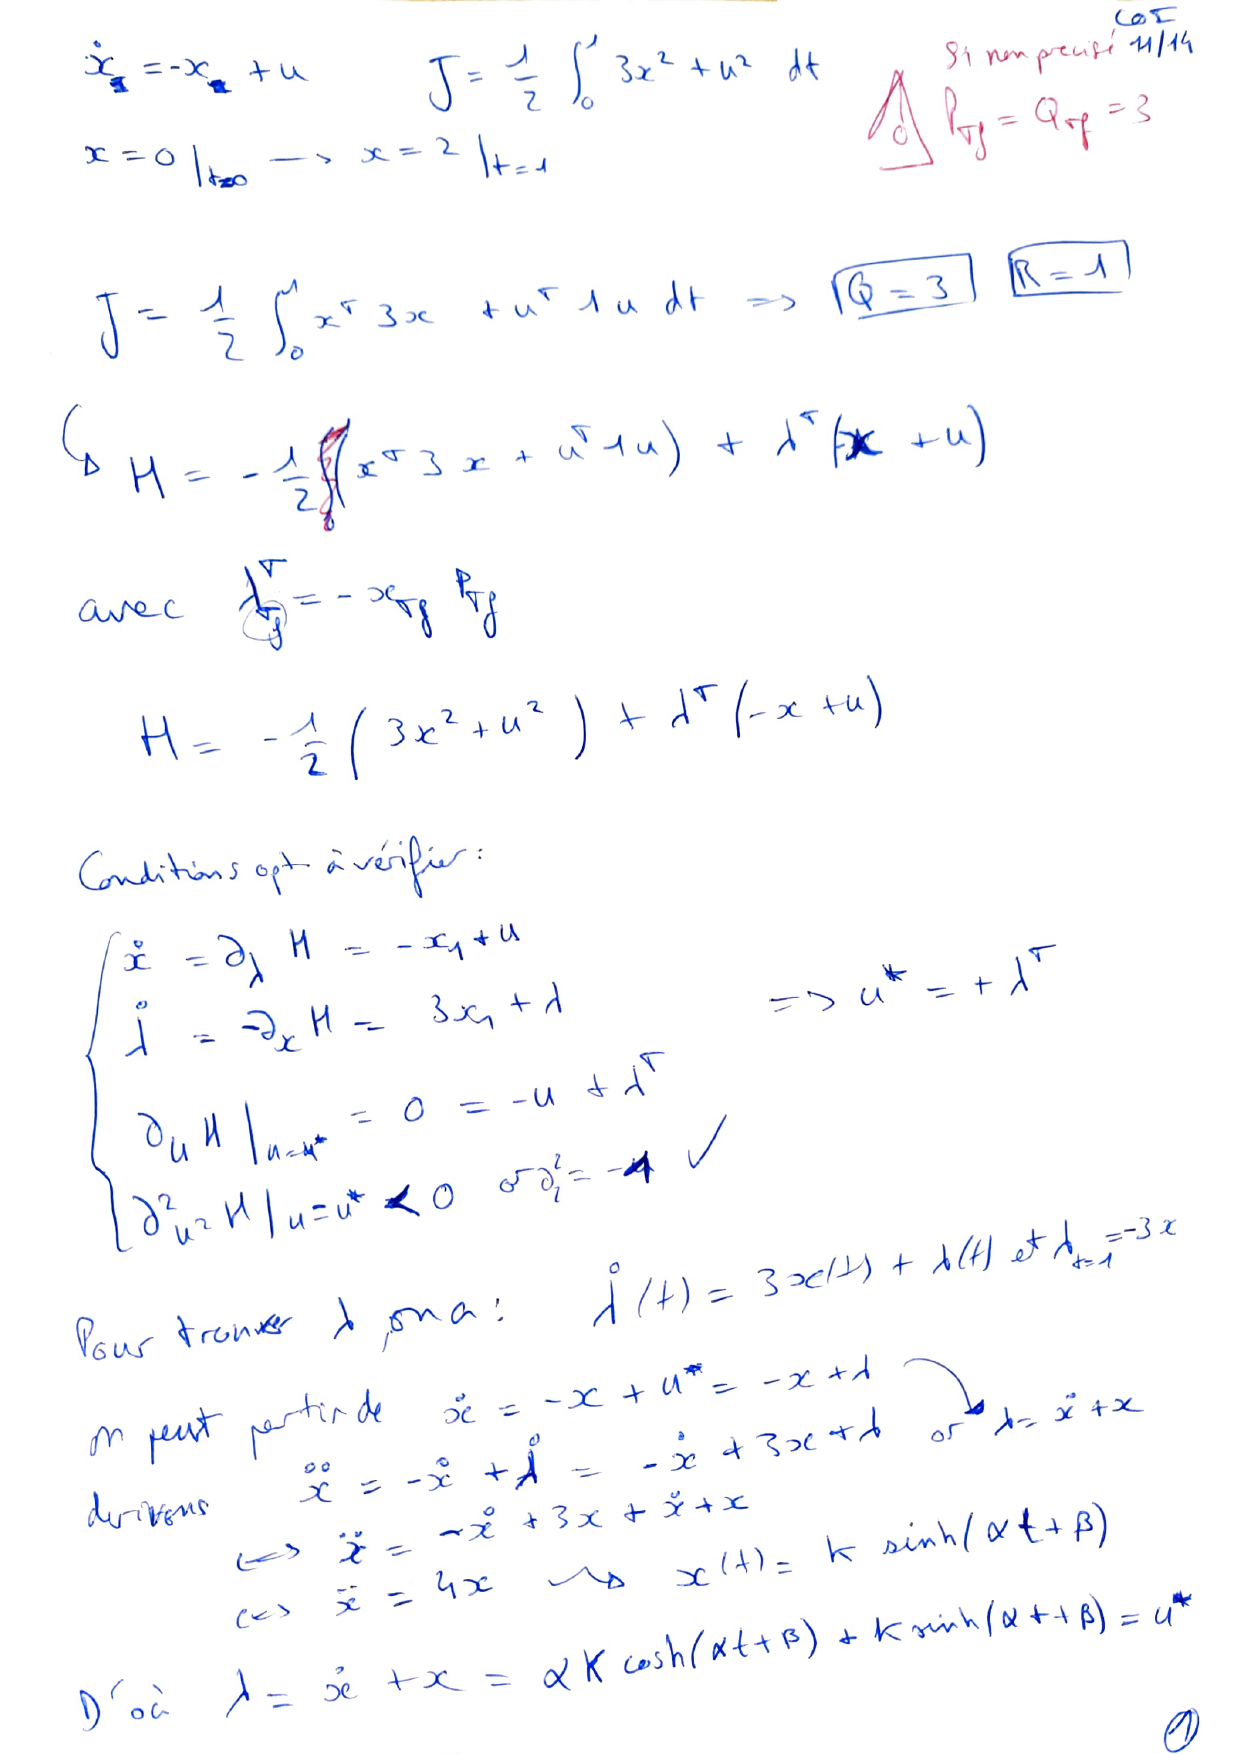 COI
11/14
Si non précisé
P_Tf = Q_Tf = 3
ẋ = -x + u   J = 1/2 ∫₀¹ 3x² + u² dt
x = 0 |t=0 → x = 2 |t=1
J = 1/2 ∫₀¹ xᵀ 3x + uᵀ 1 u dt => Q = 3   R = 1
↳ H = - 1/2 (xᵀ 3 x + uᵀ 1 u) + λᵀ (-x + u)
avec λᵀ_Tf = - x_Tf P_Tf
H = - 1/2 ( 3x² + u² ) + λᵀ (-x + u)
Conditions opt à vérifier :
ẋ = ∂_λ H = - x₁ + u
λ̇ = -∂_x H = 3x₁ + λ   => u* = + λᵀ
∂_u H |u=u* = 0 = -u + λᵀ
∂²_u² H | u=u* < 0 or ∂² = -1 ✓
Pour trouver λ, on a : λ̇(t) = 3x(t) + λ(t) et λ_t=1 = -3x
on peut partir de ẋ = -x + u* = -x + λ
derivons ẍ = -ẋ + λ̇ = -ẋ + 3x + λ or λ = ẋ + x
<=> ẍ = -ẋ + 3x + ẋ + x
<=> ẍ = 4x ⇝ x(t) = K sinh(αt + β)
D'où λ = ẋ + x = αK cosh(αt + β) + K sinh(αt + β) = u*
1